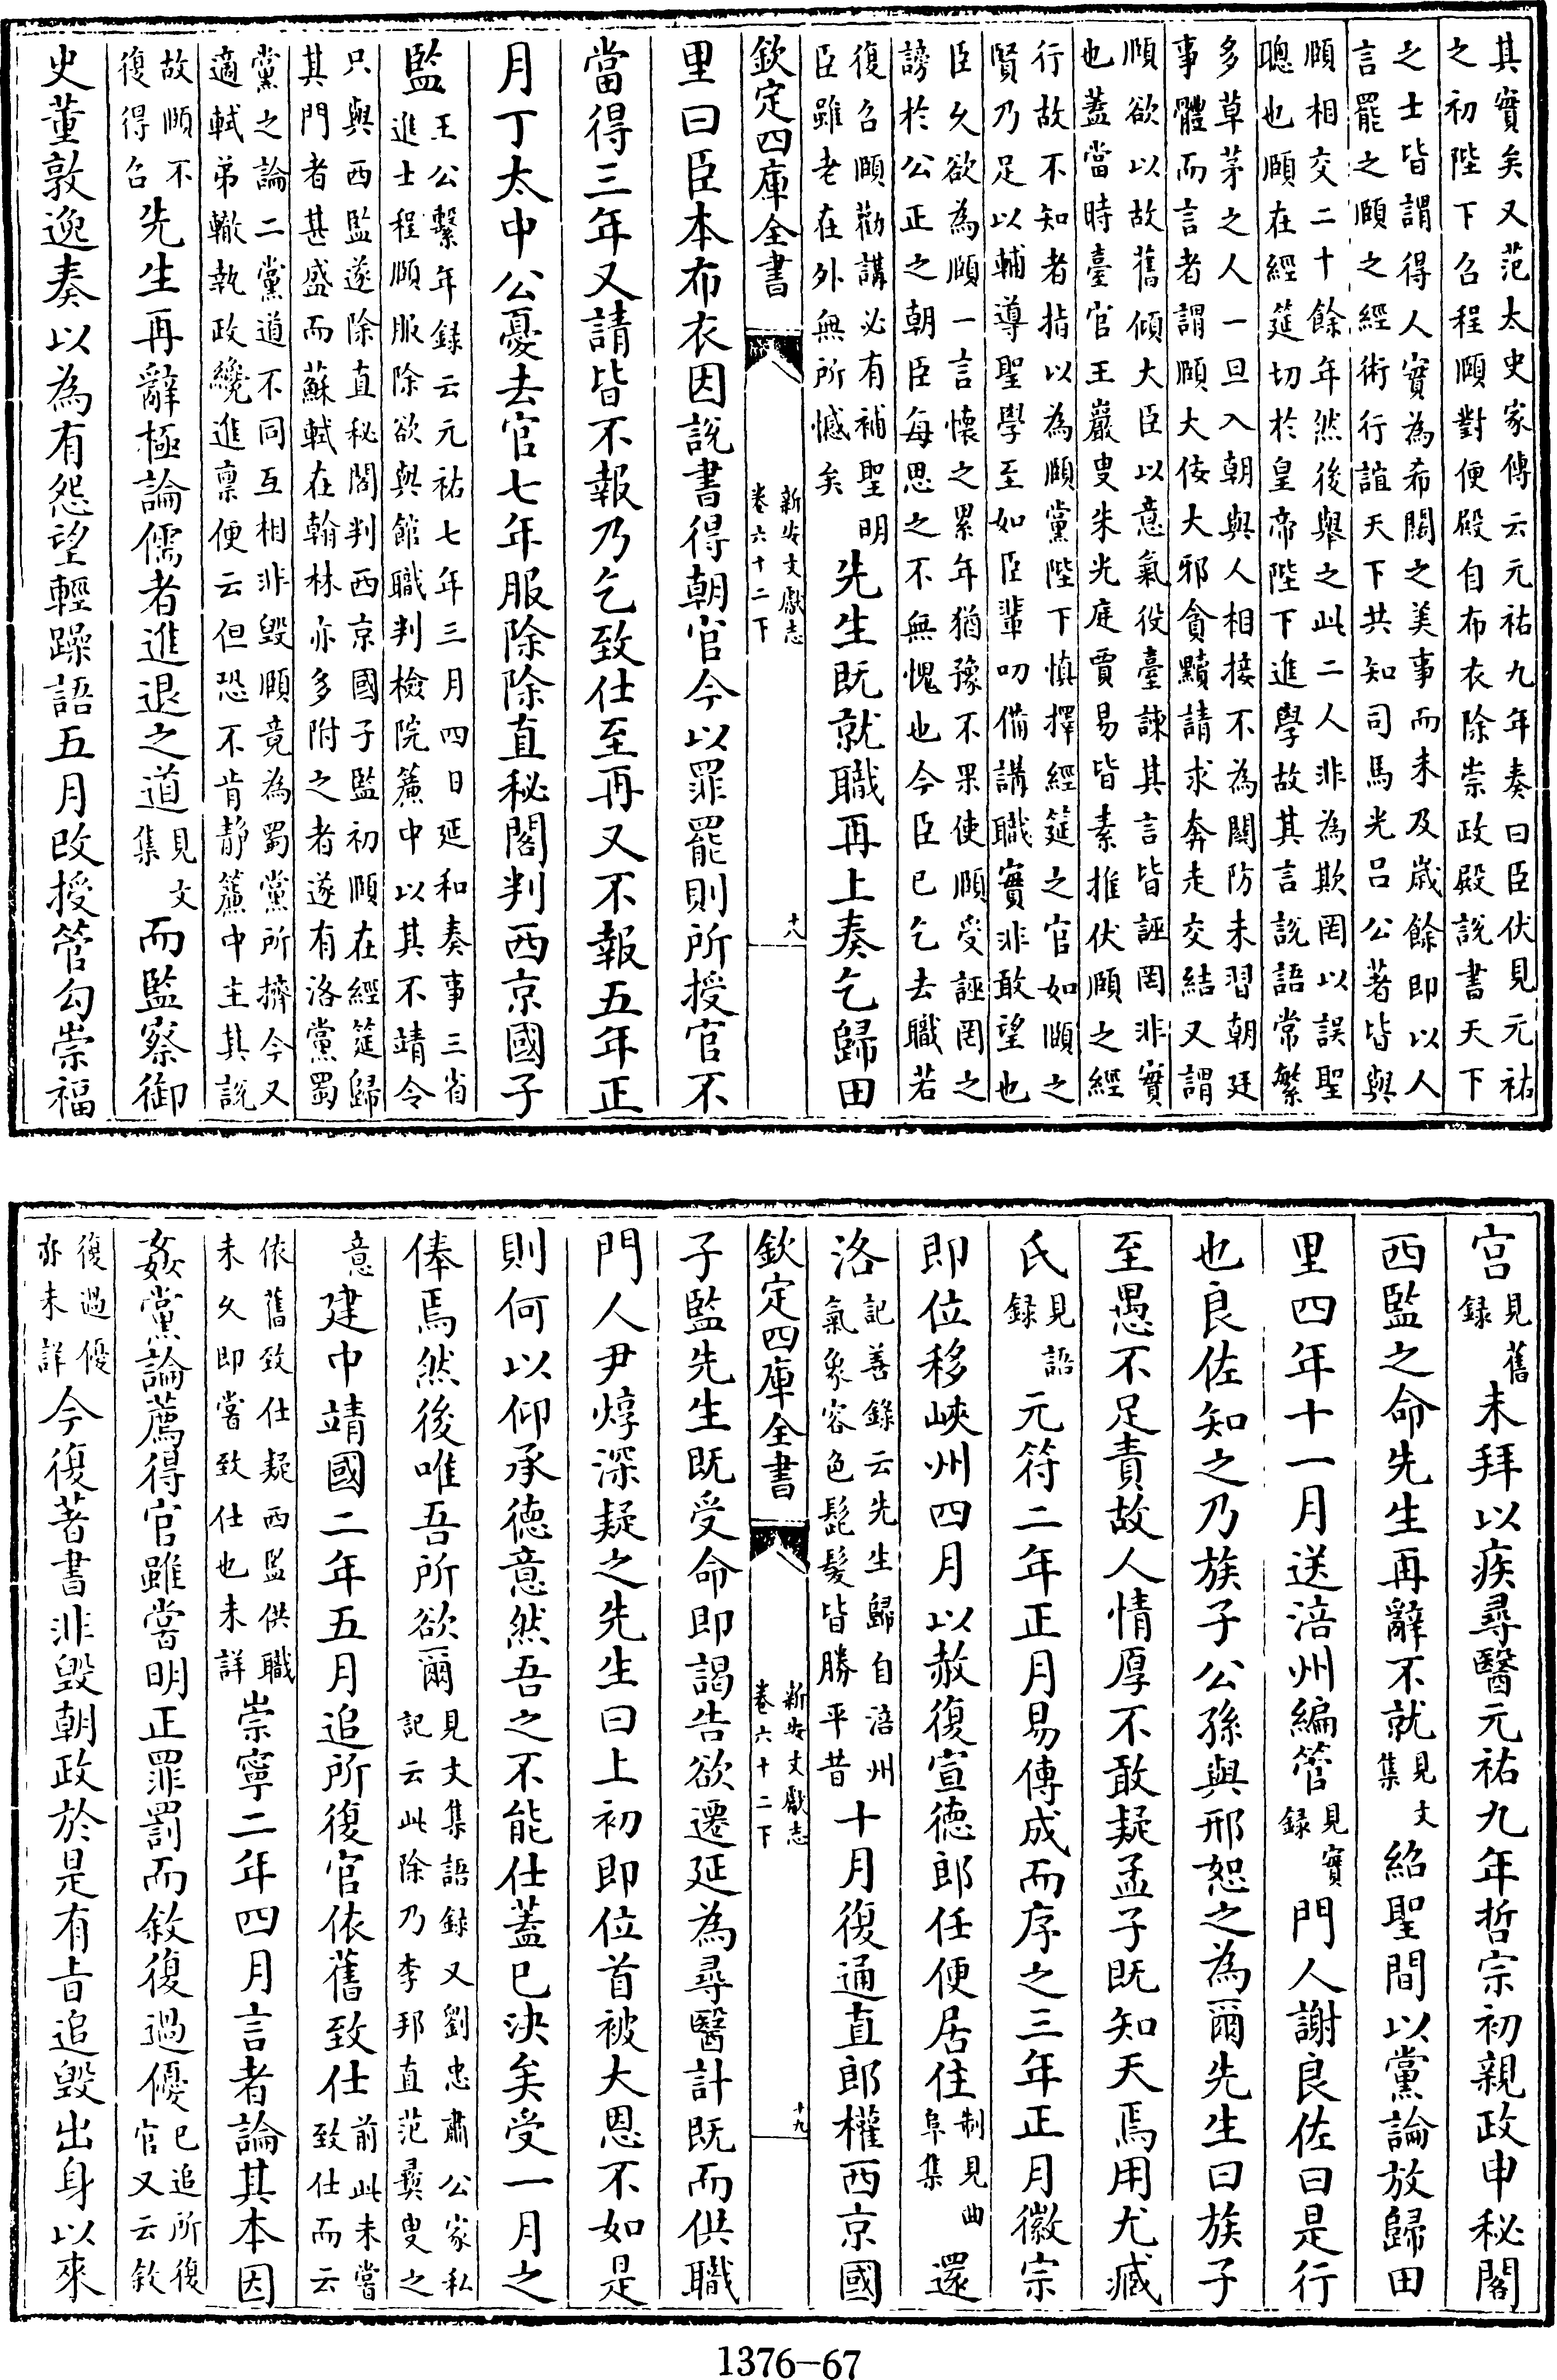 其實矣又范太史家傳云元祐九年奏曰臣伏見元祐
之初陛下召程頤對便殿自布衣除崇政殿說書天下
之士皆謂得人實為希闊之美事而未及歲餘即以人
言罷之頤之經術行誼天下共知司馬光呂公著皆與
頤相交二十餘年然後舉之此二人非為欺罔以誤聖
聰也頤在經筵切於皇帝陛下進學故其言說語常繁
多草茅之人一旦入朝與人相接不為關防未習朝廷
事體而言者謂頤大佞大邪貪黷請求奔走交結又謂
頤欲以故舊傾大臣以意氣役臺諫其言皆誣罔非實
也蓋當時臺官王巖叟朱光庭賈易皆素推伏頤之經
行故不知者指以為頤黨陛下慎擇經筵之官如頤之
賢乃足以輔導聖學至如臣輩叨備講職實非敢望也
臣久欲為頤一言懷之累年猶豫不果使頤受誣罔之
謗於公正之朝臣每思之不無愧也今臣已乞去職若
復召頤勸講必有補聖明
臣雖老在外無所憾矣
先生既就職再上奏乞歸田
欽定四庫全書
新安文獻志
卷六十二下
十八
里曰臣本布衣因說書得朝官今以罪罷則所授官不
當得三年又請皆不報乃乞致仕至再又不報五年正
月丁太中公憂去官七年服除除直秘閣判西京國子
監
王公繫年錄云元祐七年三月四日延和奏事三省
進士程頤服除欲與館職判檢院簾中以其不靖令
只與西監遂除直秘閣判西京國子監初頤在經筵歸
其門者甚盛而蘇軾在翰林亦多附之者遂有洛黨蜀
黨之論二黨道不同互相非毀頤竟為蜀黨所擠今又
適軾弟轍執政纔進稟便云但恐不肯靜簾中主其說
故頤不
復得召
先生再辭極論儒者進退之道
見文
集
而監察御
史董敦逸奏以為有怨望輕躁語五月改授管勾崇福
宮
見舊
錄
未拜以疾尋醫元祐九年哲宗初親政申秘閣
西監之命先生再辭不就
見文
集
紹聖間以黨論放歸田
里四年十一月送涪州編管
見實
錄
門人謝良佐曰是行
也良佐知之乃族子公孫與邢恕之為爾先生曰族子
至愚不足責故人情厚不敢疑孟子既知天焉用尤臧
氏
見語
錄
元符二年正月易傳成而序之三年正月徽宗
即位移峽州四月以赦復宣德郎任便居住
制見曲
阜集
還
洛
記善錄云先生歸自涪州
氣象容色髭髮皆勝平昔
十月復通直郎權西京國
欽定四庫全書
新安文獻志
卷六十二下
十九
子監先生既受命即謁告欲遷延為尋醫計既而供職
門人尹焞深疑之先生曰上初即位首被大恩不如是
則何以仰承德意然吾之不能仕蓋已決矣受一月之
俸焉然後唯吾所欲爾
見文集語錄又劉忠肅公家私
記云此除乃李邦直范彛叟之
意
建中靖國二年五月追所復官依舊致仕
前此未嘗
致仕而云
依舊致仕疑西監供職
未久即嘗致仕也未詳
崇寧二年四月言者論其本因
姦黨論薦得官雖嘗明正罪罰而敘復過優
已追所復
官又云敘
復過優
亦未詳
今復著書非毀朝政於是有旨追毀出身以來
1376-67